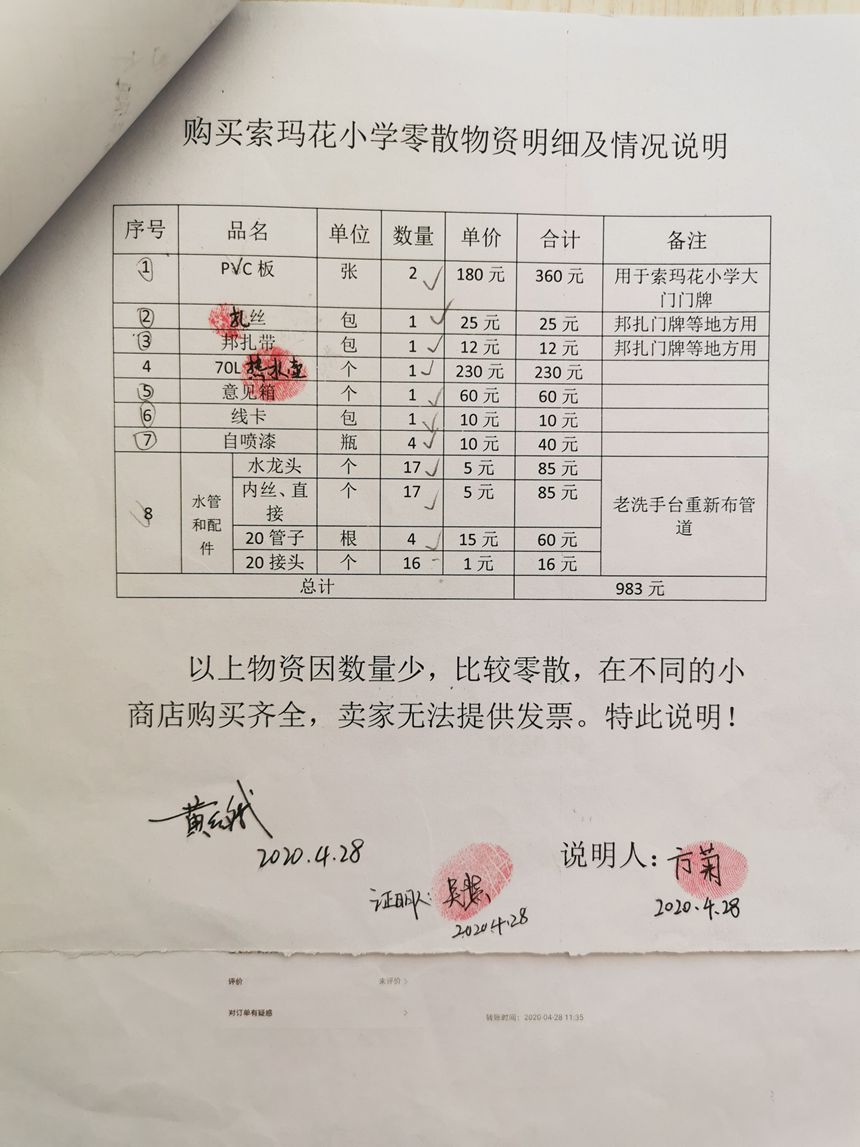 购买索玛花小学零散物资明细及情况说明
序号 品名 单位 数量 单价 合计 备注
1 PVC板 张 2 180元 360元 用于索玛花小学大
门门牌
2 扎丝 包 1 25元 25元 邦扎门牌等地方用
3 邦扎带 包 1 12元 12元 邦扎门牌等地方用
4 70L热水壶 个 1 230元 230元
5 意见箱 个 1 60元 60元
6 线卡 包 1 10元 10元
7 自喷漆 瓶 4 10元 40元
8 水管
和配
件
水龙头 个 17 5元 85元
内丝、直
接 个 17 5元 85元
20管子 根 4 15元 60元
20接头 个 16 1元 16元
老洗手台重新布管
道
总计 983元
以上物资因数量少，比较零散，在不同的小
商店购买齐全，卖家无法提供发票。特此说明！
2020.4.28
证明人：
2020 4.28
说明人：方菊
2020.4.28
评价 未评价 >
对订单有疑惑 >
转账时间：2020-04-28 11:35